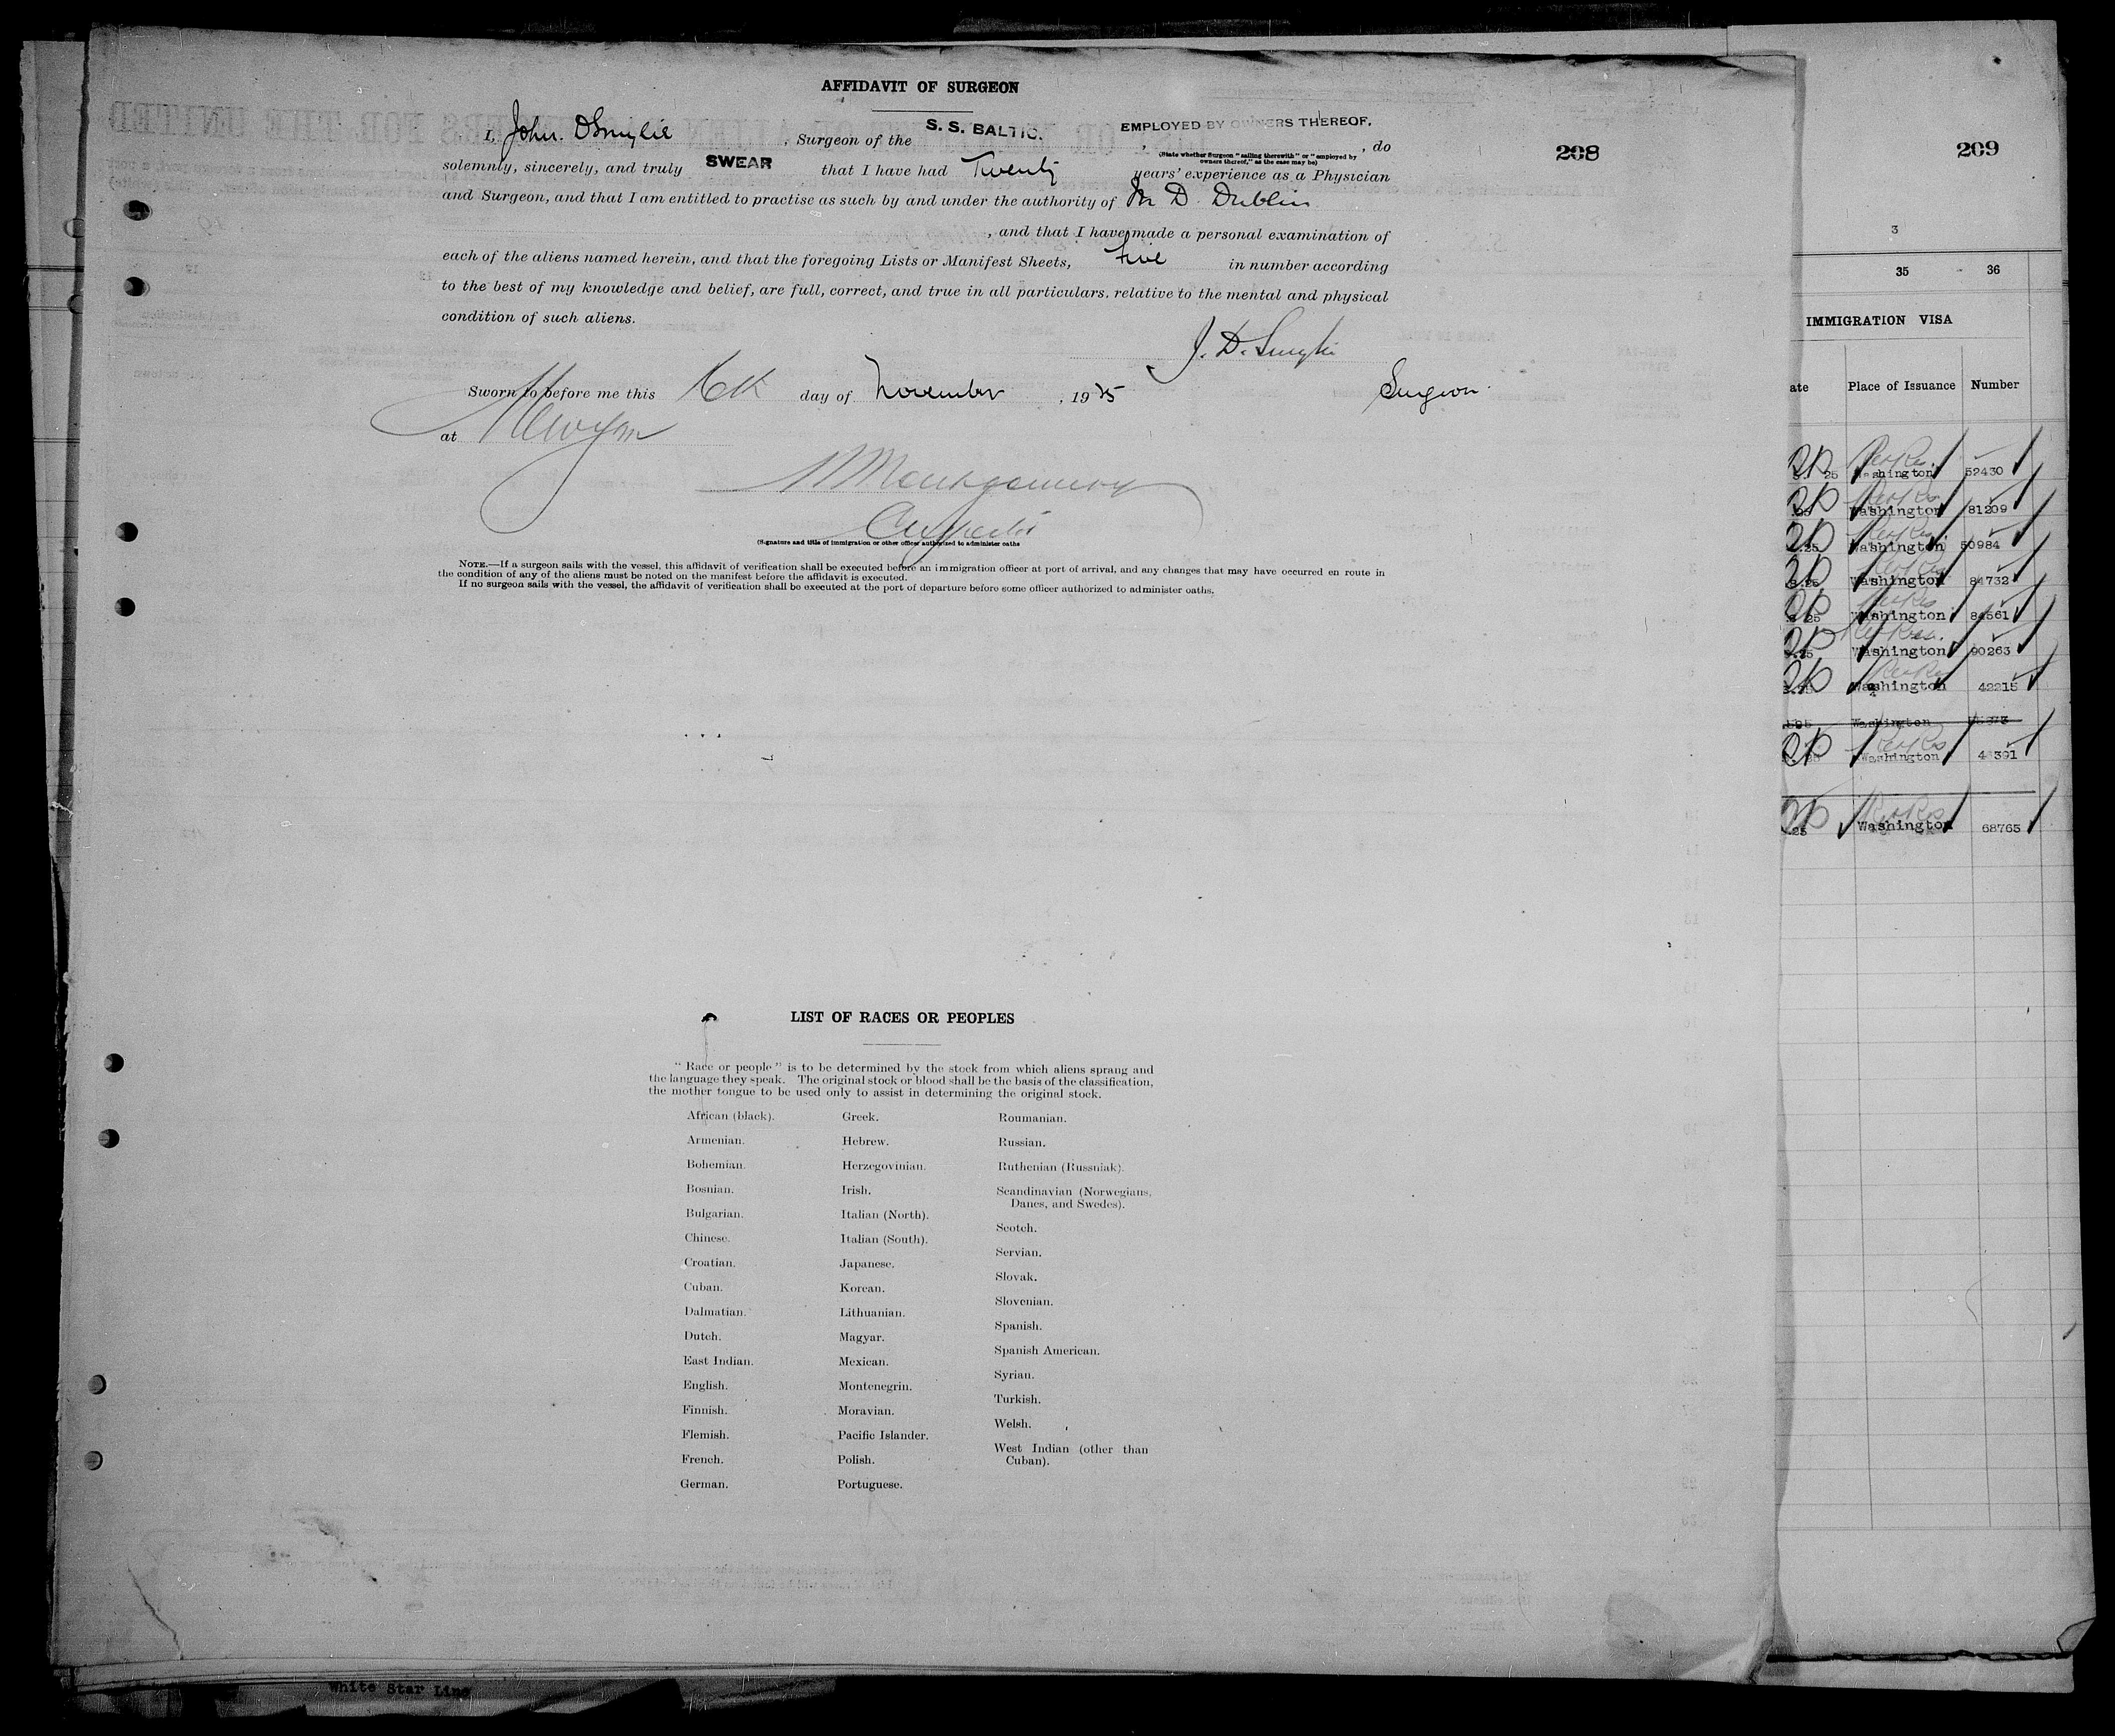 AFFIDAVIT OF SURGEON
I, John. D Smylie , Surgeon of the S. S. BALTIC. , EMPLOYED BY OWNERS THEREOF. , do
(State whether Surgeon "sailing therewith" or "employed by
owners thereof," as the case may be)
solemnly, sincerely, and truly SWEAR that I have had Twenty years' experience as a Physician
and Surgeon, and that I am entitled to practise as such by and under the authority of M D. Dublin
, and that I have made a personal examination of
each of the aliens named herein, and that the foregoing Lists or Manifest Sheets, Five in number according
to the best of my knowledge and belief, are full, correct, and true in all particulars. relative to the mental and physical
condition of such aliens.
J. D. Smylie
Surgeon.
Sworn to before me this 6th day of November , 1925
at
Montgomery
(Signature and title of immigration or other officer authorized to administer oaths
NOTE.—If a surgeon sails with the vessel, this affidavit of verification shall be executed before an immigration officer at port of arrival, and any changes that may have occurred en route in
the condition of any of the aliens must be noted on the manifest before the affidavit is executed.
If no surgeon sails with the vessel, the affidavit of verification shall be executed at the port of departure before some officer authorized to administer oaths.
208
LIST OF RACES OR PEOPLES
"Race or people" is to be determined by the stock from which aliens sprang and
the language they speak. The original stock or blood shall be the basis of the classification,
the mother tongue to be used only to assist in determining the original stock.
African (black).
Armenian.
Bohemian.
Bosnian.
Bulgarian.
Chinese.
Croatian.
Cuban.
Dalmatian.
Dutch.
East Indian.
English.
Finnish.
Flemish.
French.
German.
Greek.
Hebrew.
Herzegovinian.
Irish.
Italian (North).
Italian (South).
Japanese.
Korean.
Lithuanian.
Magyar.
Mexican.
Montenegrin.
Moravian.
Pacific Islander.
Polish.
Portuguese.
Roumanian.
Russian.
Ruthenian (Russniak).
Scandinavian (Norwegians,
Danes, and Swedes).
Scotch.
Servian.
Slovak.
Slovenian.
Spanish.
Spanish American.
Syrian.
Turkish.
Welsh.
West Indian (other than
Cuban).
209
3
35 36
IMMIGRATION VISA
ate Place of Issuance Number
25 Washington 52430
Washington 81209
.25 Washington 50984
.25 Washington 84732
25 Washington 84561
.25 Washington 90263
Washington 42215
Washington
Washington 391
.25 Washington 68765
White Star Line